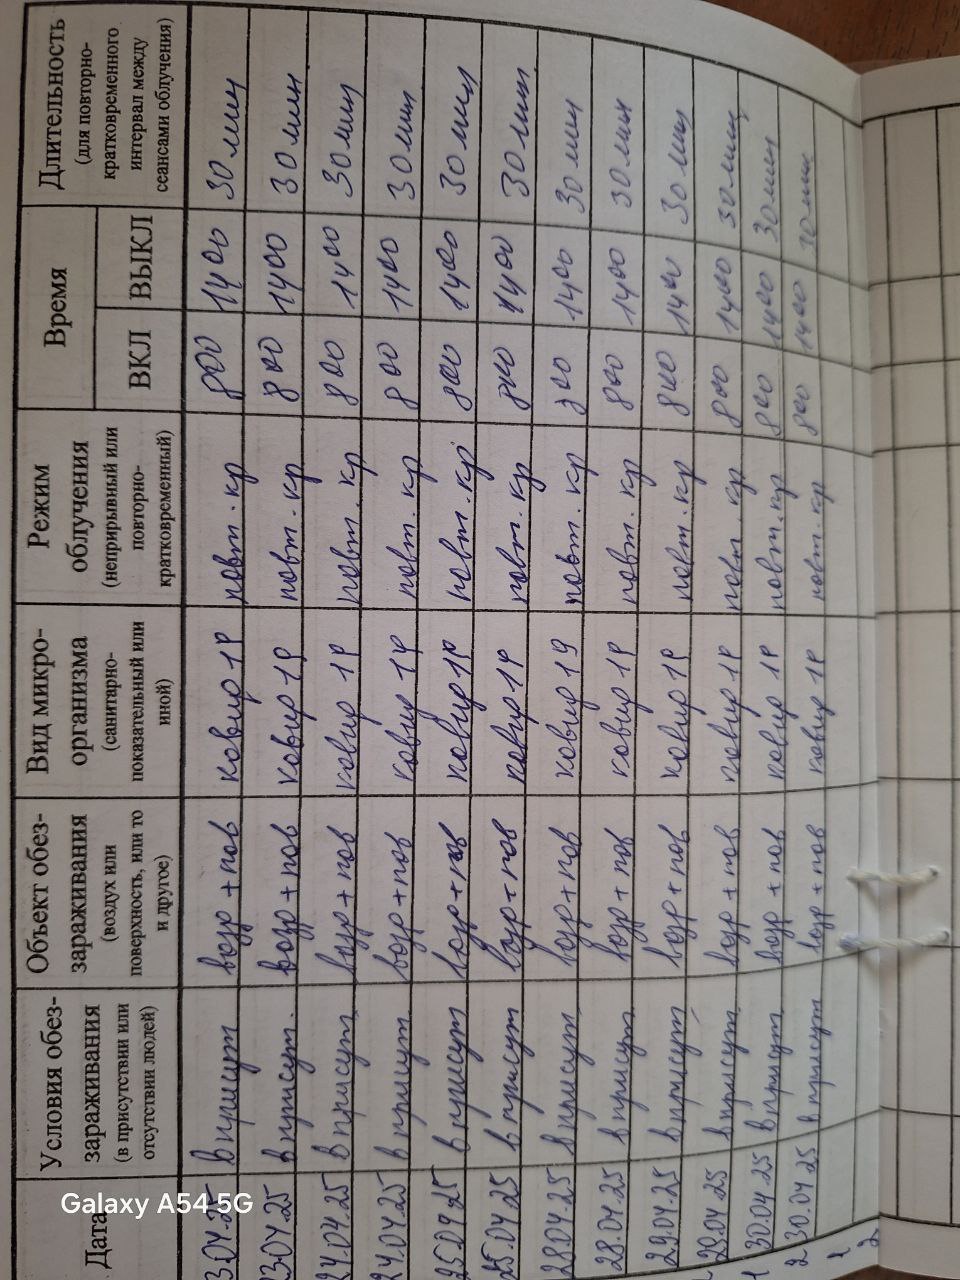 Дата
Условия обез-
зараживания
(в присутствии или
отсутствии людей)
Объект обез-
зараживания
(воздух или
поверхность, или то
и другое)
Вид микро-
организма
(санитарно-
показательный или
иной)
Режим
облучения
(неприрывный или
повторно-
кратковременный)
Время
ВКЛ
ВЫКЛ
Длительность
(для повторно-
кратковременного
интервал между
сеансами облучения)
3.04.25 в присут возд + пов ковид 19 повт. кр 800 1400 30 мин
23.04.25 в присут. возд + пов ковид 19 повт. кр 800 1400 30 мин
24.04.25 в присут. возд + пов ковид 19 повт. кр 800 1400 30 мин
24.04.25 в присут. возд + пов ковид 19 повт. кр 800 1400 30 мин
25.04.25 в присут возд + пов ковид 19 повт. кр 800 1400 30 мин
25.04.25 в присут возд + пов ковид 19 повт. кр 800 1400 30 мин
28.04.25 в присут. возд + пов ковид 19 повт. кр 800 1400 30 мин
28.04.25 в присут. возд + пов ковид 19 повт. кр 800 1400 30 мин
29.04.25 в присут возд + пов ковид 19 повт. кр 800 1400 30 мин
29.04.25 в присут. возд + пов ковид 19 повт. кр 800 1400 30 мин
1 30.04.25 в присут. возд + пов ковид 19 повт. кр 800 1400 30 мин
2 30.04.25 в присут возд + пов ковид 19 повт. кр 800 1400 мин
1
2
Galaxy A54 5G